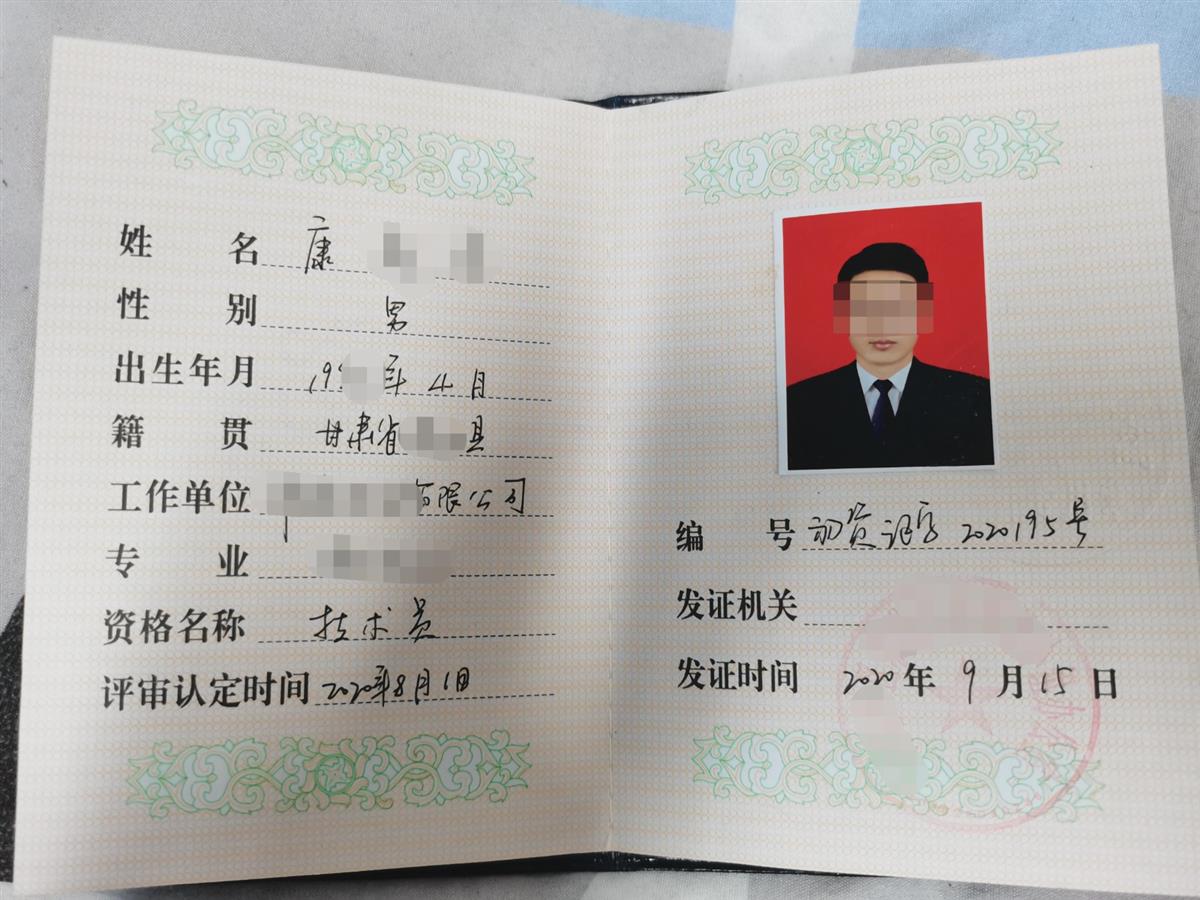 姓名 康
性别 男
出生年月 199 年4月
籍贯 甘肃省 县
工作单位 有限公司
专业
资格名称 技术员
评审认定时间 2020年8月1日
编号 初资认字2020195号
发证机关
发证时间 2020年9月15日